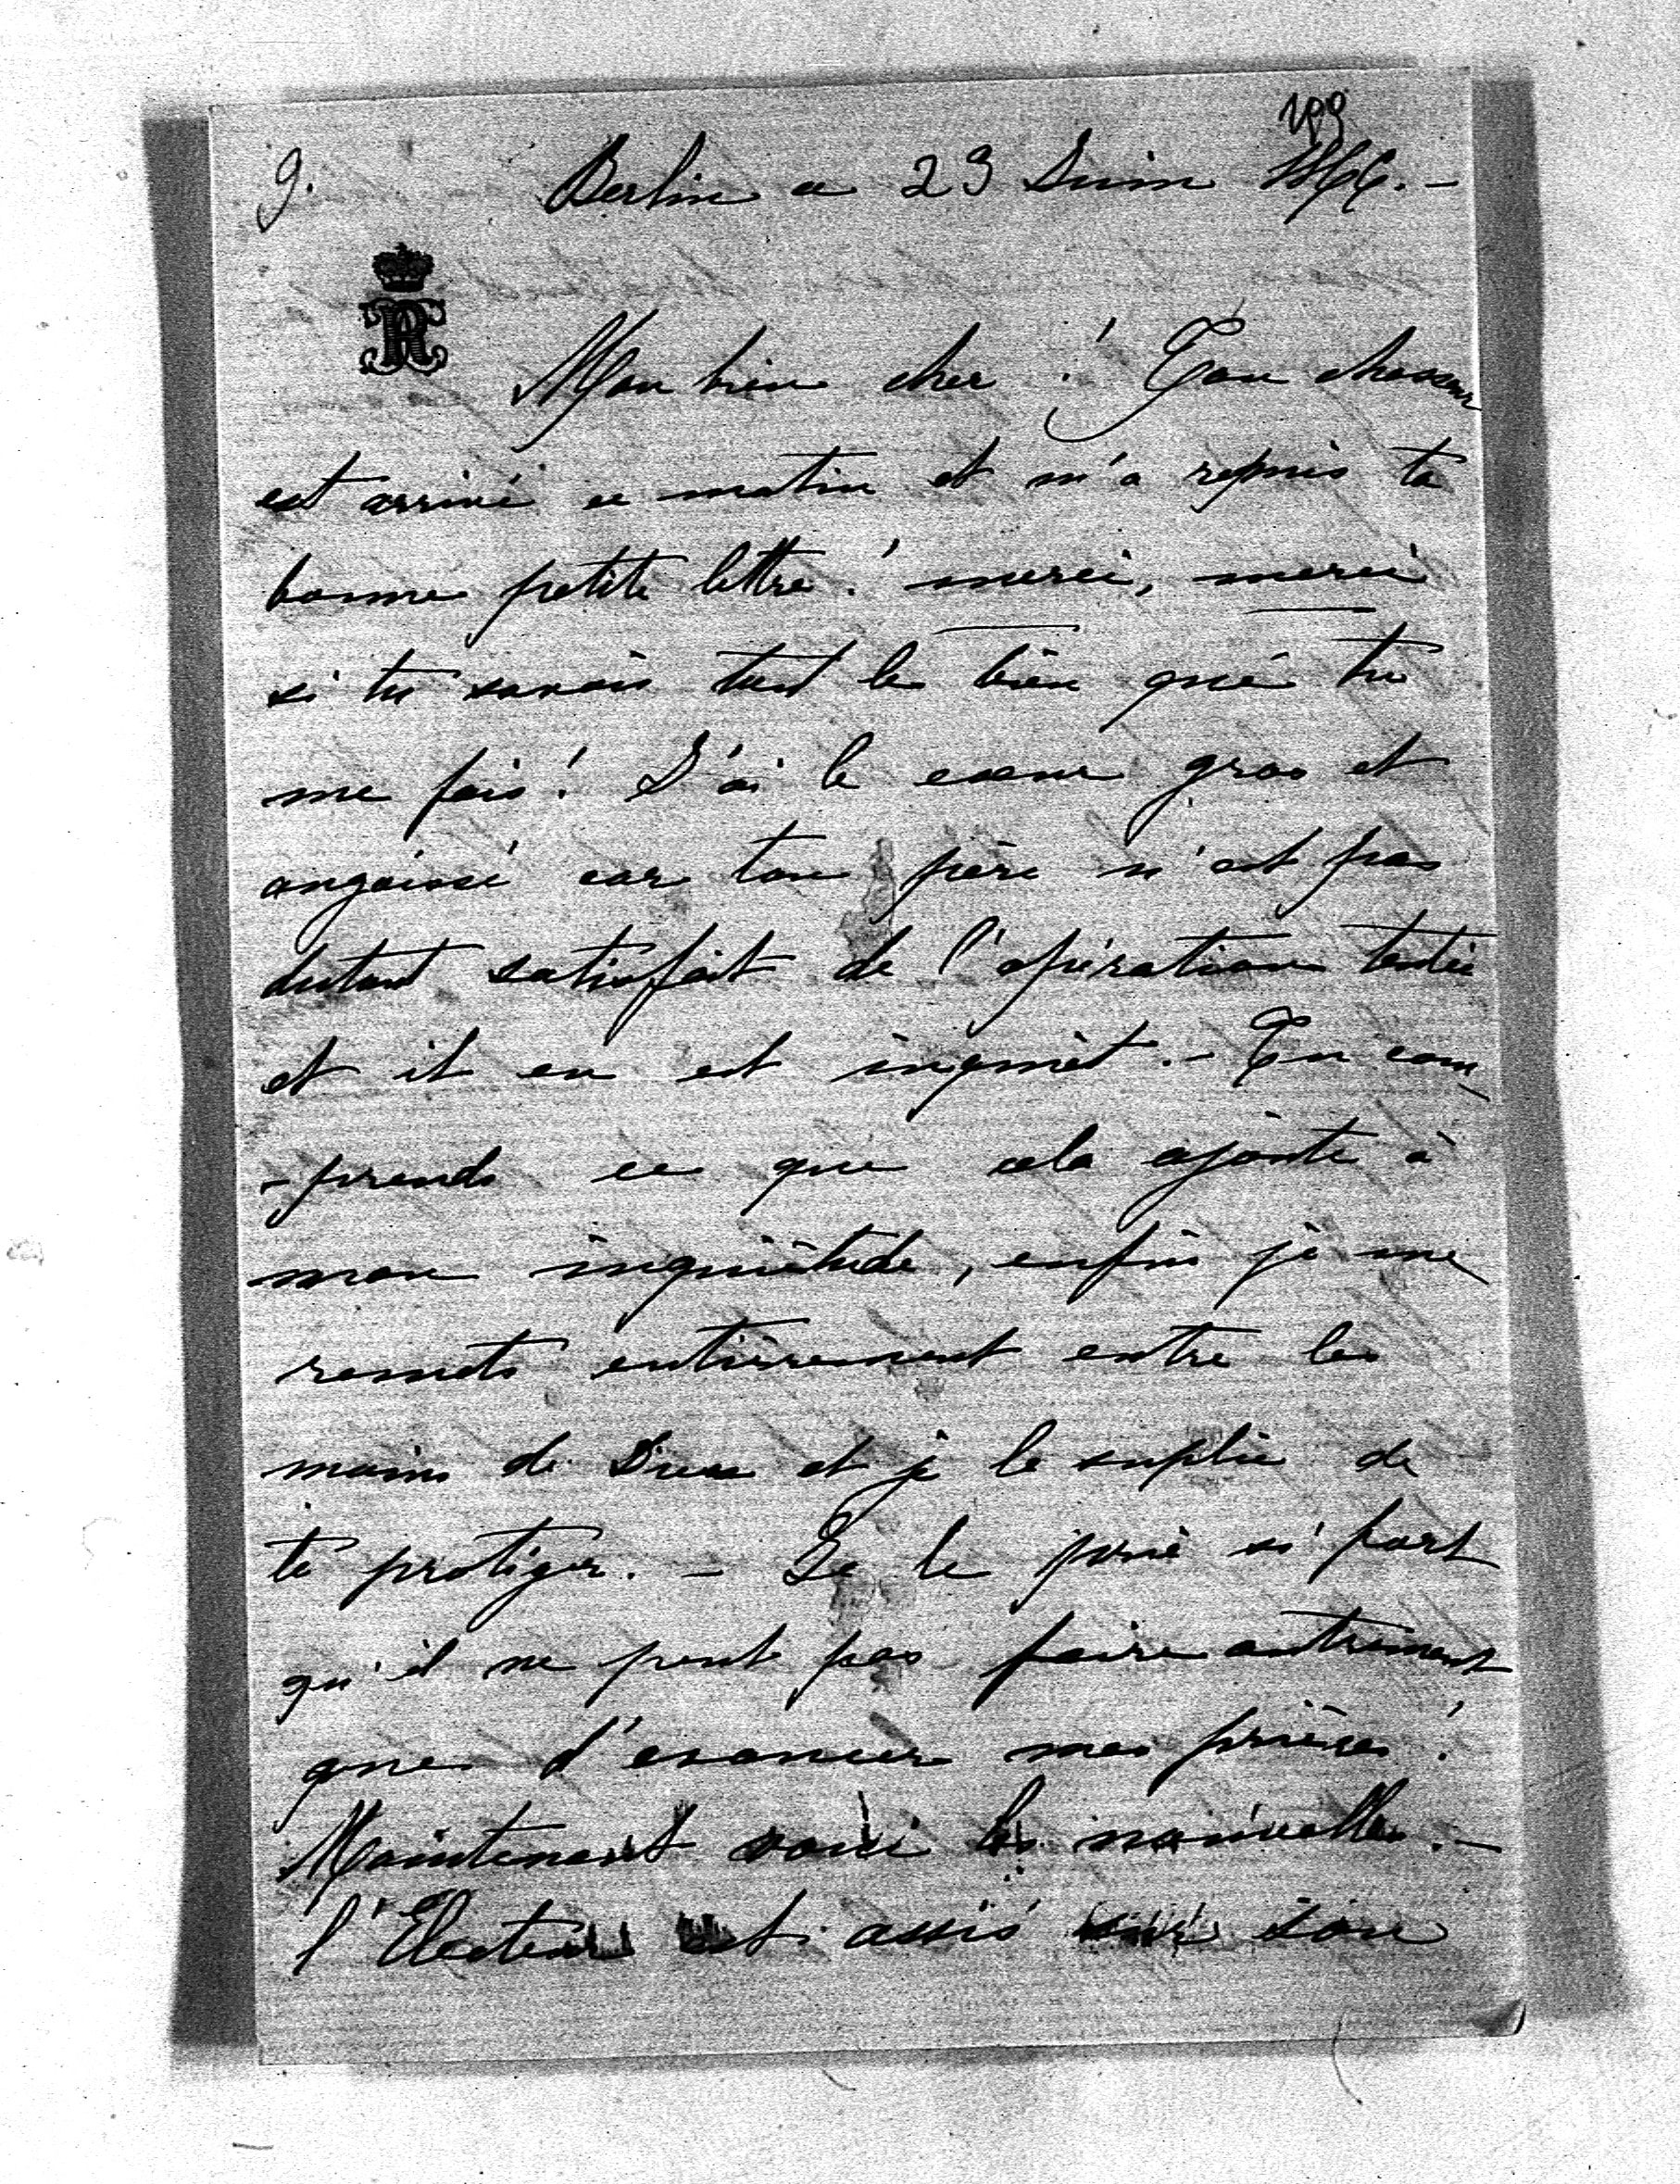 9.
Berlin ce 23 Juin 1866. -
Mon bien cher ! Ton chasseur
est arrivé ce matin et m'a remis ta
bonne petite lettre ! merci, merci
si tu savais tout le bien que tu
me fais ! J'ai le coeur gros et
angoissé car ton père n'est pas
dutout satisfait de l'opération tentée
et il en est inquiet. - Tu com
-prends ce que cela ajoute à
mon inquiètude, enfin je me
remets entièrement entre les
mains de Dieu et je le suplie de
te protéger. - Je le prie si fort
qu'il ne peut pas faire autrement
que d'exaucer mes prières !
Maintenant voici les nouvelles. -
l'Electeur est assis sur son